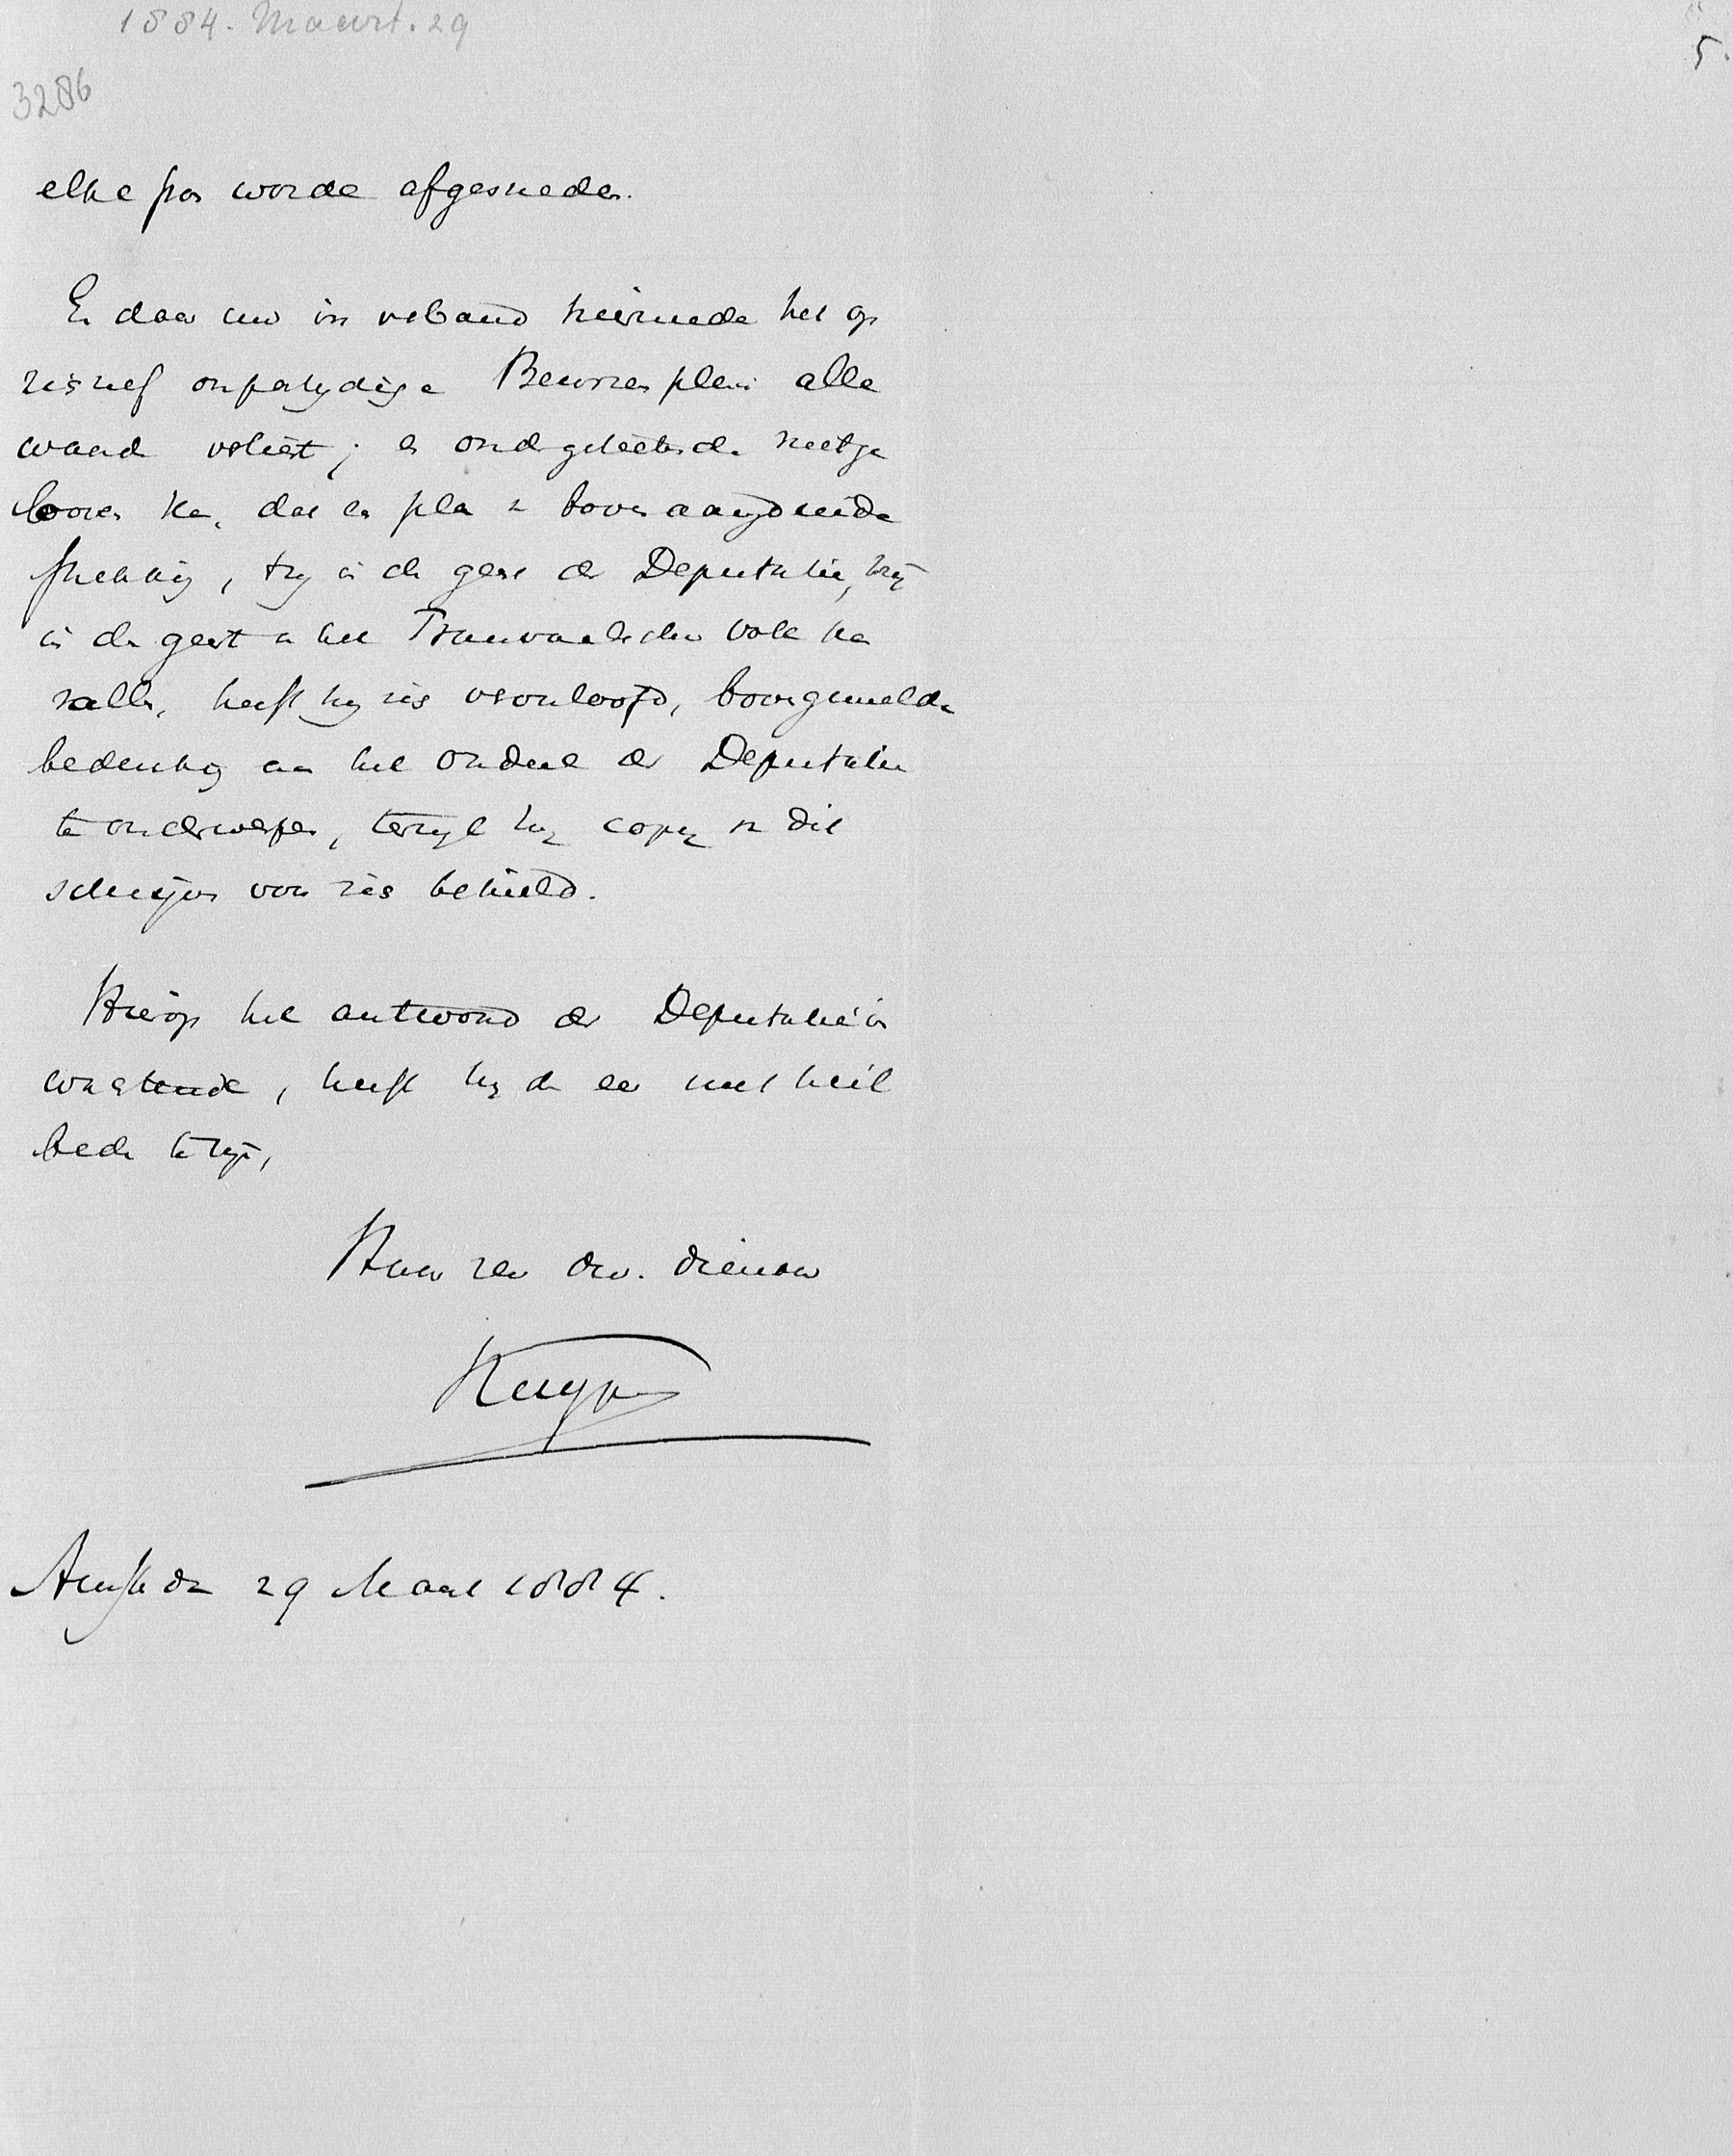 1884. Maart. 29
5.
3286
elke pas worde afgesneden.
En daar nu in verband hiermede het op
zichzelf onpartijdige Beurzenplan alle
waarde verliest; en ondergeteekende niet ge
looven kan, dat een plan van bovenaangeduide
strekking, hetzij in den geest der Deputatie, hetzij
in den geest van het Transvaalsche volk kan
vallen, heeft hij zich veroorloofd, bovengemelde
bedenking aan het oordeel der Deputatie
te onderwerpen, terwijl hij copy van dit
schrijven voor zich behield.
Hierop het antwoord der Deputatie in
wachtende, heeft hij de eer met heil
bede te zijn,
Haar zeer dw. dienaar
Kuyper
Amsterdam 29 Maart 1884.